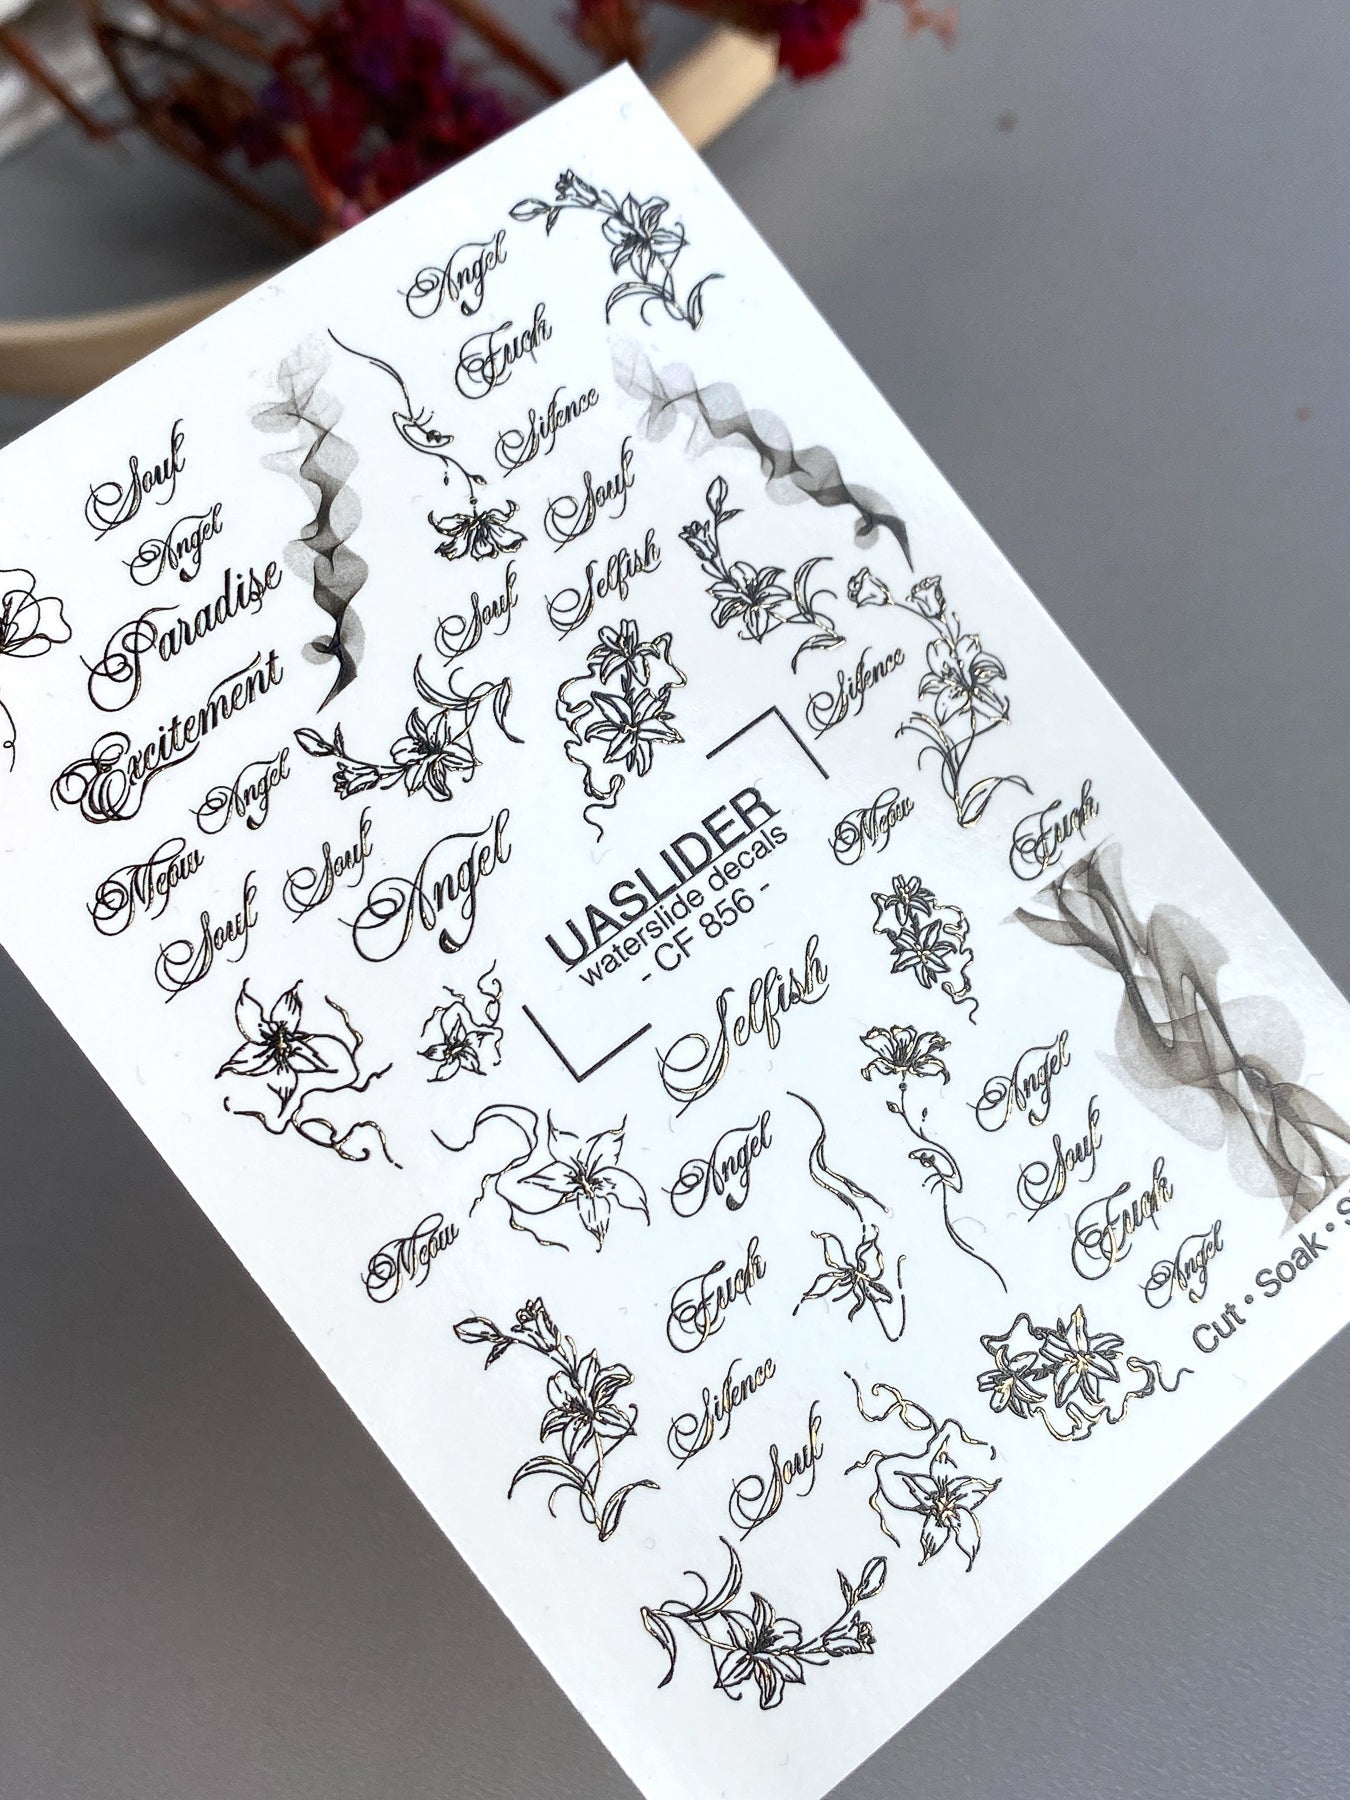 Angel
Fuck
Silence
Soul
Soul
Angel
Selfish
Paradise
Soul
Excitement
Silence
Angel
Meow
Soul
Angel
Meow
Soul
Fuck
UASLIDER
waterslide decals
- CF 856 -
Selfish
Angel
Angel
Soul
Meow
Fuck
Fuck
Angel
Silence
Soul
Cut • Soak • S